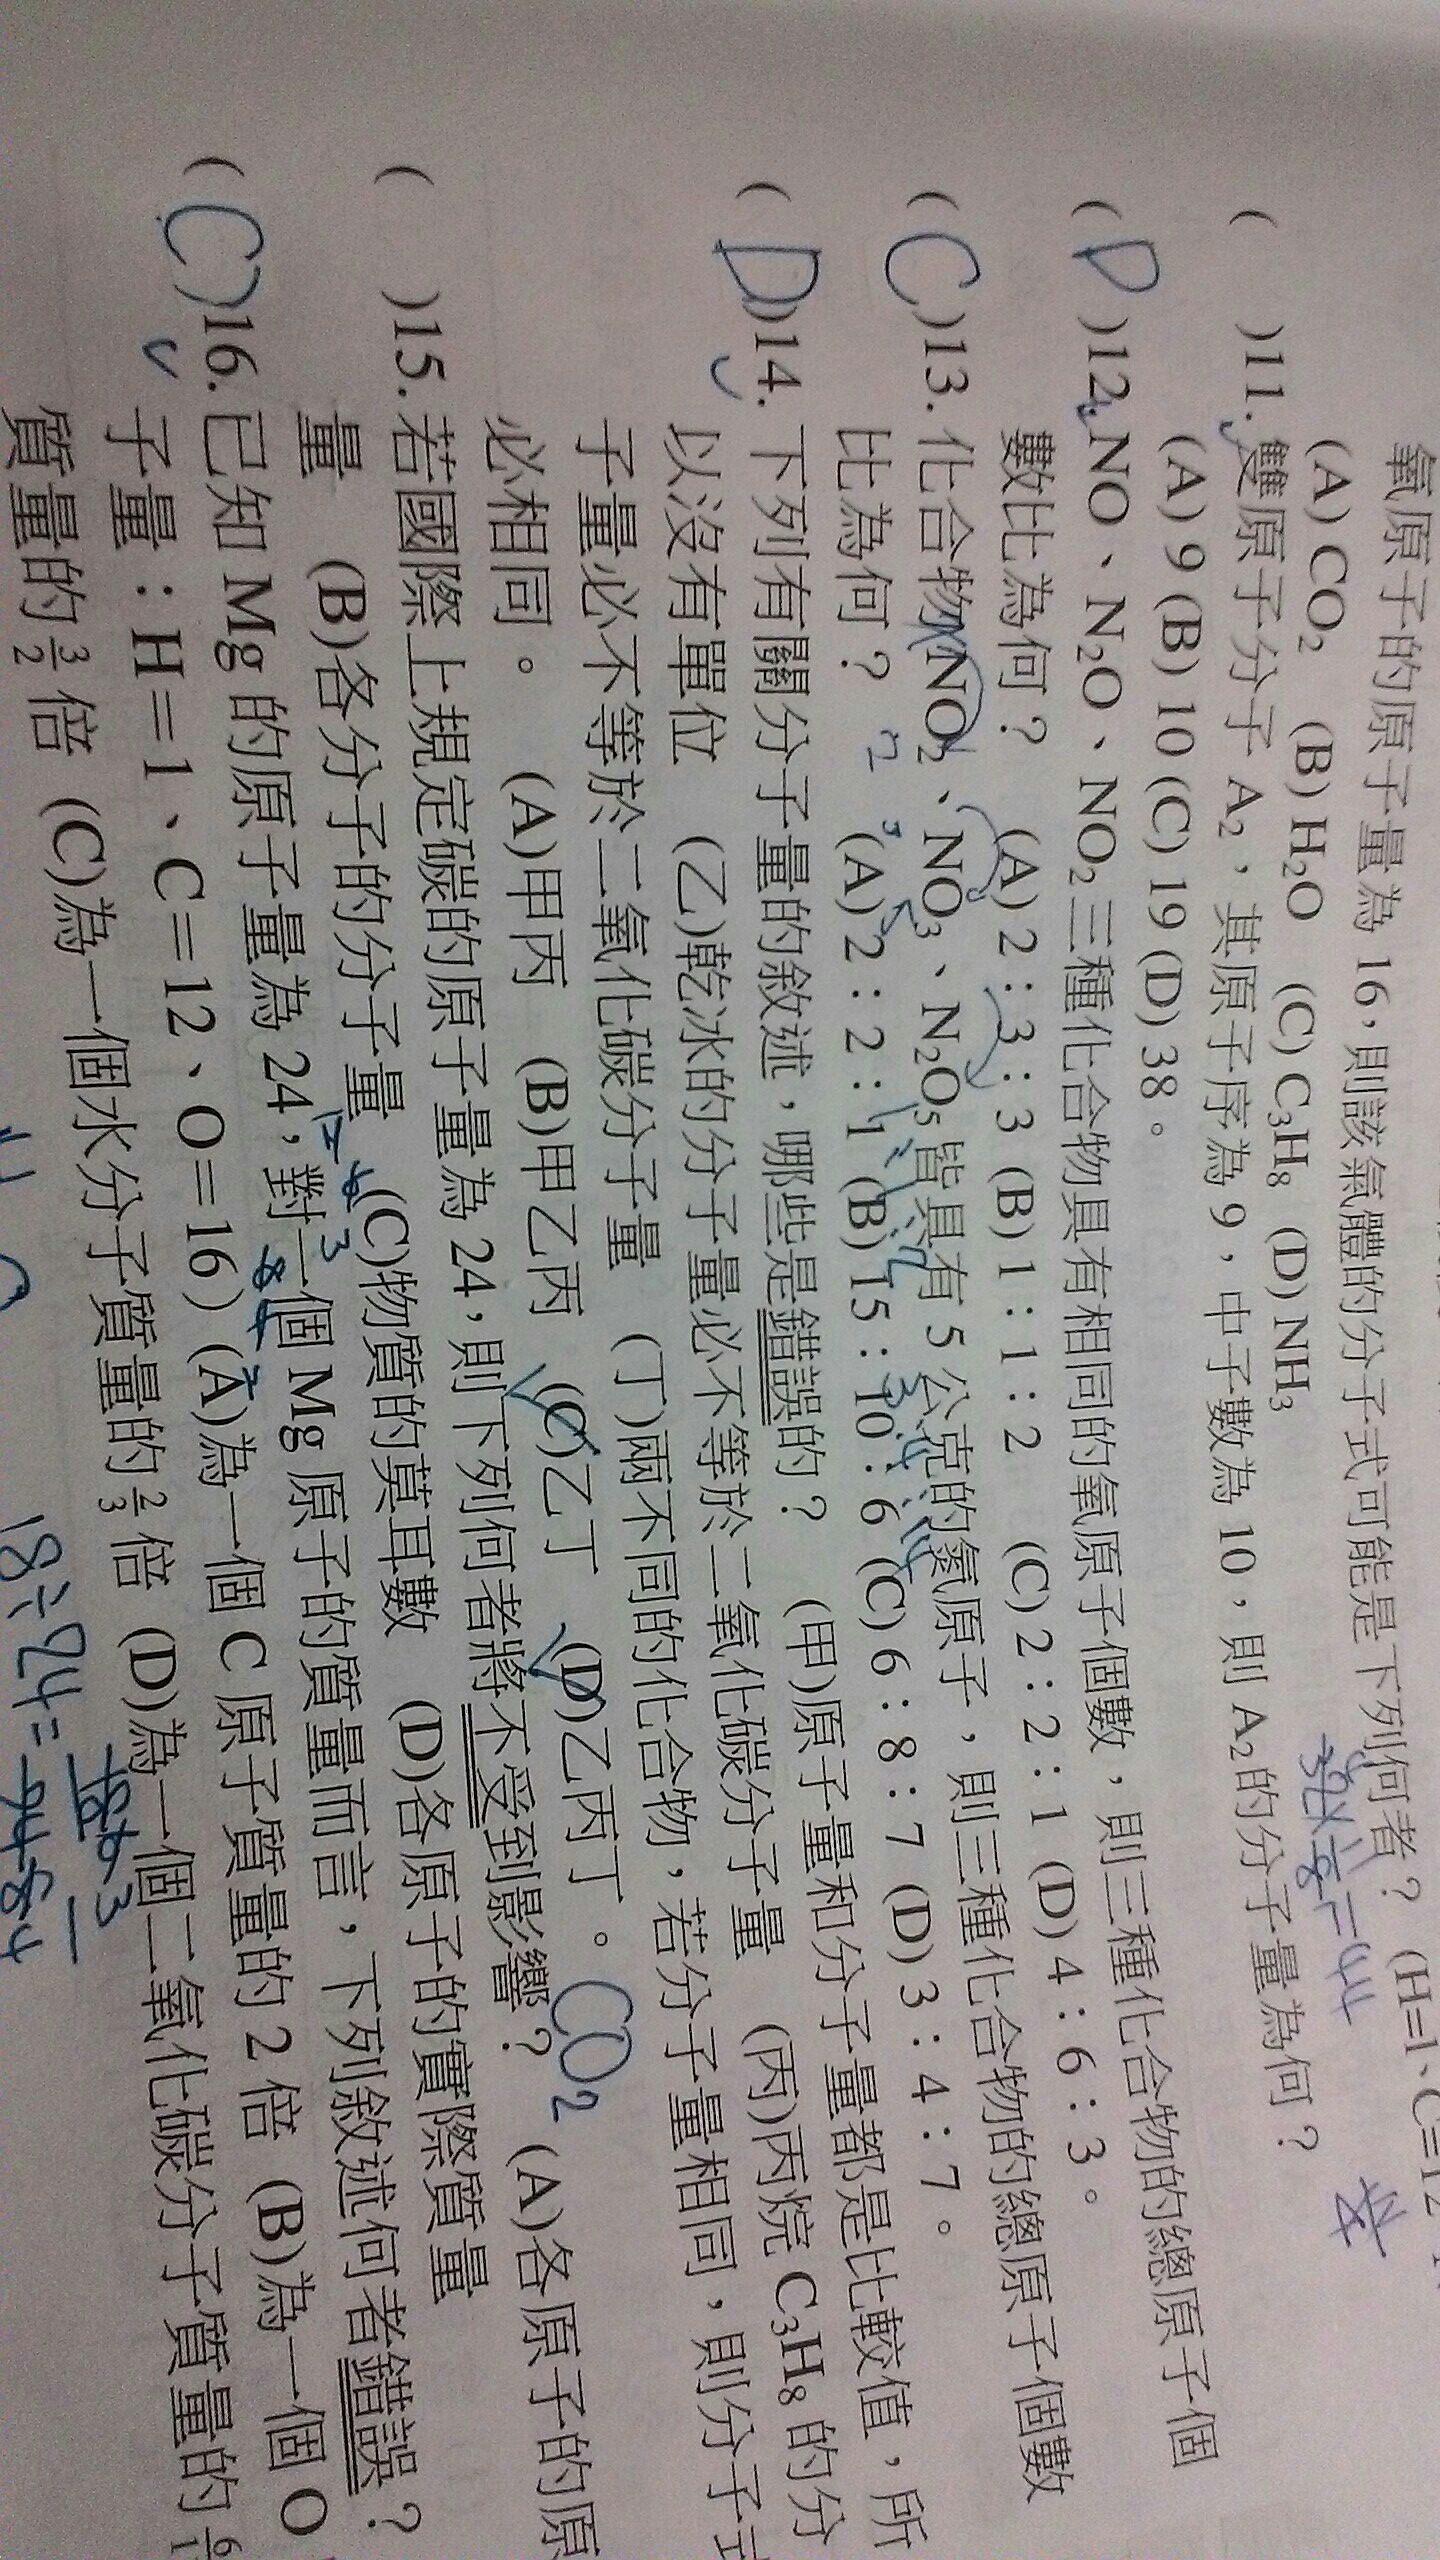 氧原子的原子量為 16，則該氣體的分子式可能是下列何者？ (H=1、C=12
(A) CO₂ (B) H₂O (C) C₃H₈ (D) NH₃
( )11. 雙原子分子 A₂，其原子序為 9，中子數為 10，則 A₂的分子量為何？
(A) 9 (B) 10 (C) 19 (D) 38。
( D )12. NO、N₂O、NO₂三種化合物具有相同的氧原子個數，則三種化合物的總原子個
數比為何？ (A) 2：3：3 (B) 1：1：2 (C) 2：2：1 (D) 4：6：3。
( C )13. 化合物 NO₂、NO₃、N₂O₅皆具有 5 公克的氮原子，則三種化合物的總原子個數
比為何？ (A) 2：2：1 (B) 15：10：6 (C) 6：8：7 (D) 3：4：7。
( D )14. 下列有關分子量的敘述，哪些是錯誤的？ (甲)原子量和分子量都是比較值，所
以沒有單位 (乙)乾冰的分子量必不等於二氧化碳分子量 (丙)丙烷 C₃H₈ 的分
子量必不等於二氧化碳分子量 (丁)兩不同的化合物，若分子量相同，則分子式
必相同。 (A)甲丙 (B)甲乙丙 (C)乙丁 (D)乙丙丁。 CO₂
( )15. 若國際上規定碳的原子量為 24，則下列何者將不受到影響？ (A)各原子的原
量 (B)各分子的分子量 (C)物質的莫耳數 (D)各原子的實際質量
( C )16. 已知 Mg 的原子量為 24，對一個 Mg 原子的質量而言，下列敘述何者錯誤？
子量：H＝1、C＝12、O＝16) (A)為一個 C 原子質量的 2 倍 (B)為一個 O
質量的 3/2 倍 (C)為一個水分子質量的 2/3 倍 (D)為一個二氧化碳分子質量的
18÷24=